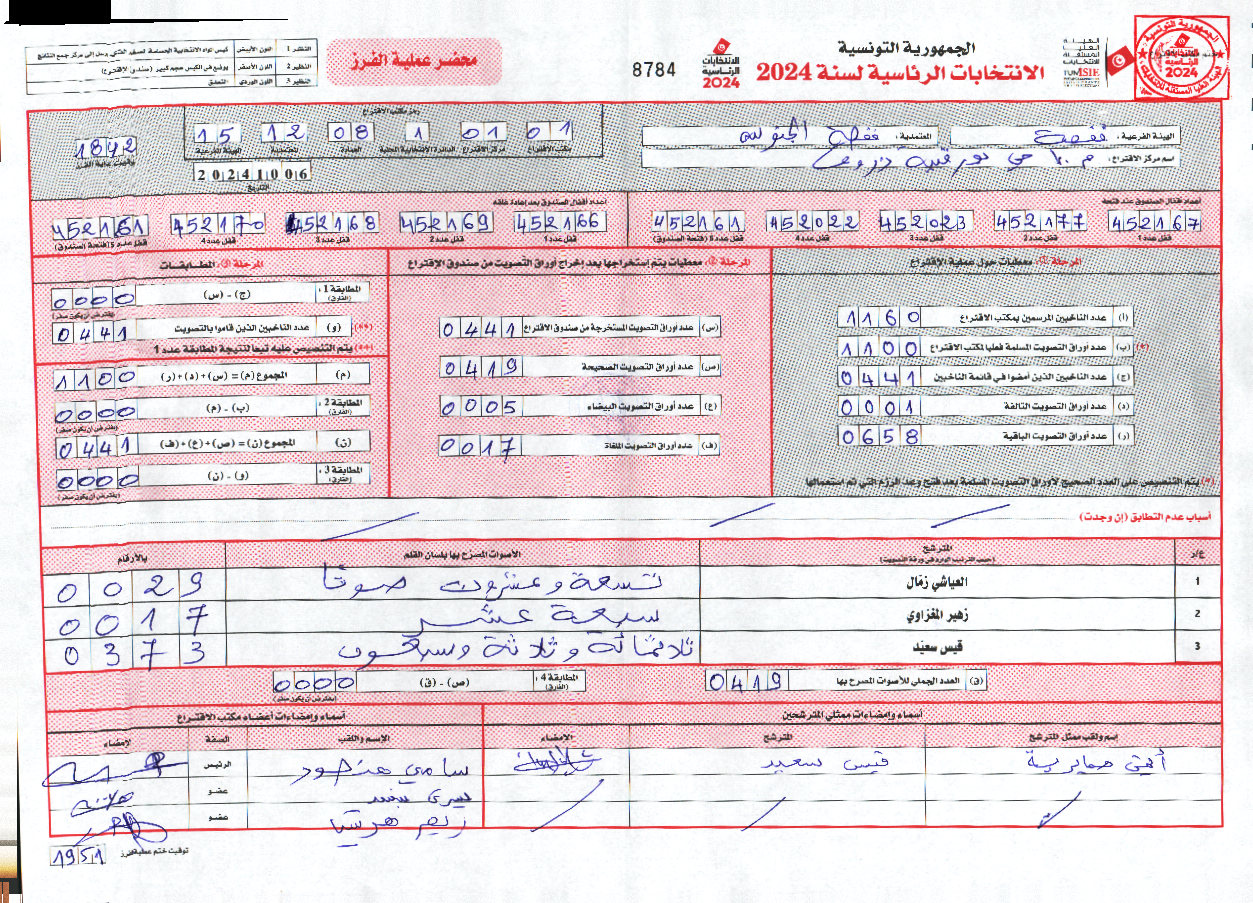 الجمهورية التونسية
الانتخابات الرئاسية لسنة 2024
8784
الانتخابات الرئاسية 2024
محضر عملية الفرز
النظير 1 اللون الأبيض
النظير 2 اللون الأصفر يوضع في الكيس حجم كبير (صندوق الاقتراع)
النظير 3 اللون الوردي التعليق
الهيئة الفرعية : قفصة المعتمدية : قفصة الجنوبية
اسم مركز الاقتراع :
رمز مكتب الاقتراع
01 01 1 08 12 15
مكتب الاقتراع مركز الاقتراع الدائرة الانتخابية المحلية العمادة المعتمدية الهيئة الفرعية
1842
توقيت بداية الفرز
20241006
التاريخ
أعداد أقفال الصندوق عند فتحه
452167 452177 452023 452022 452161
قفل عدد 1 قفل عدد 2 قفل عدد 3 قفل عدد 4 قفل عدد 5 (فتحة الصندوق)
أعداد أقفال الصندوق بعد إعادة غلقه
452166 452169 452168 452170 452161
قفل عدد 1 قفل عدد 2 قفل عدد 3 قفل عدد 4 قفل عدد 5 (فتحة الصندوق)
المرحلة 1: معطيات حول عملية الاقتراع
(أ) عدد الناخبين المرسمين بمكتب الاقتراع 1160
(*) (ب) عدد أوراق التصويت المسلمة فعليا لمكتب الاقتراع 1100
(ج) عدد الناخبين الذين أمضوا في قائمة الناخبين 0441
(د) عدد أوراق التصويت التالفة 0001
(ر) عدد أوراق التصويت الباقية 0658
(*) يتم التنصيص على العدد الصحيح لأوراق التصويت المسلمة بعد فتح وعد الرزم التي تم استعمالها
المرحلة 2: معطيات يتم إستخراجها بعد إخراج أوراق التصويت من صندوق الإقتراع
(س) عدد أوراق التصويت المستخرجة من صندوق الاقتراع 0441
(ص) عدد أوراق التصويت الصحيحة 0419
(ع) عدد أوراق التصويت البيضاء 0005
(ف) عدد أوراق التصويت الملغاة 0017
المرحلة 3: المطابقات
المطابقة 1 : (الفارق) (ج) - (س) 0000
(يفترض أن يكون صفر)
(**) (و) عدد الناخبين الذين قاموا بالتصويت 0441
(**) يتم التنصيص عليه تبعا لنتيجة المطابقة عدد 1
(م) المجموع (م) = (س) + (د) + (ر) 1100
المطابقة 2 : (الفارق) (ب) - (م) 0000
(يفترض أن يكون صفر)
(ن) المجموع (ن) = (ص) + (ع) + (ف) 0441
المطابقة 3 : (الفارق) (و) - (ن) 0000
(يفترض أن يكون صفر)
أسباب عدم التطابق (إن وجدت)
ع/د المترشح (حسب الترتيب الوارد في ورقة التصويت) الأصوات المصرح بها بلسان القلم بالأرقام
1 العياشي زمّال تسعة وعشرون صوتا 0029
2 زهير المغزاوي سبعة عشر 0017
3 قيس سعيّد ثلاثمائة وثلاثة وسبعون 0373
(ق) العدد الجملي للأصوات المصرح بها 0419
المطابقة 4 : (الفارق) (ص) - (ق) 0000
(يفترض أن يكون صفر)
أسماء وإمضاءات ممثلي المترشحين
إسم ولقب ممثل المترشح المترشح الإمضاء
قيس سعيد
أسماء وإمضاءات أعضاء مكتب الاقتراع
الإسم واللقب الصفة الإمضاء
سامي الرئيس
يسرى عضو
ريم عضو
1951 توقيت ختم عملية الفرز